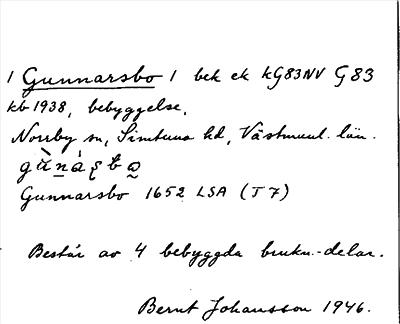 1 Gunnarsbo 1 bek ek kG83NV G 83
kb 1938, bebyggelse.
Norrby sn, Simtuna hd, Västmanl. län.
Gunnarsbo 1652 LSA (T7)
Består av 4 bebyggda brukn.-delar.
Bernt Johansson 1946.